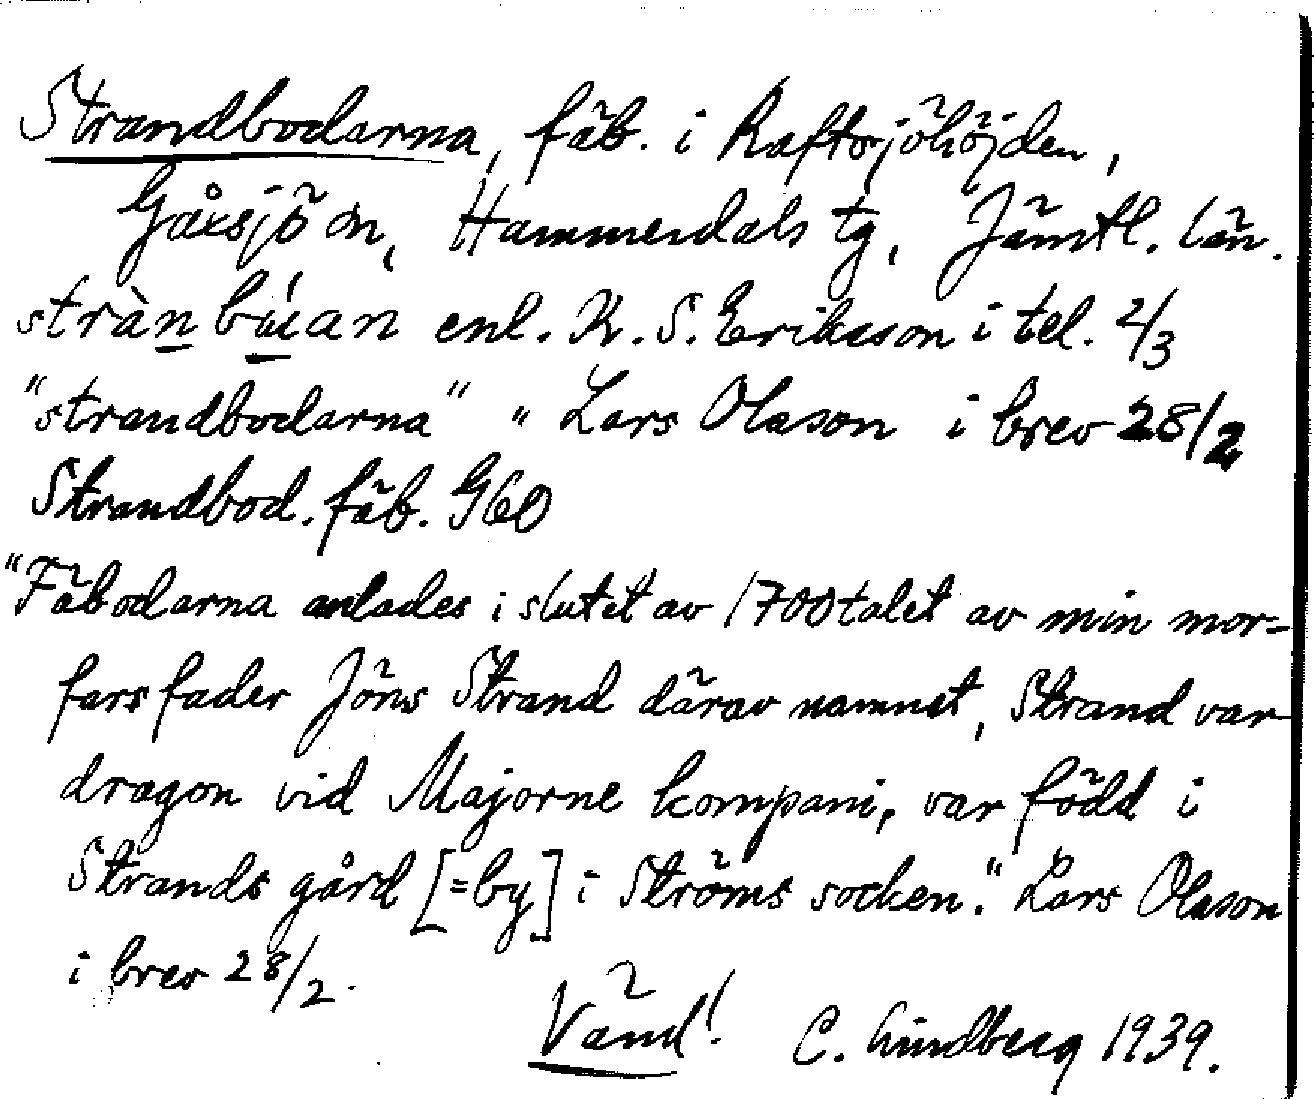 Strandbodarna, fäb. i Raftsjöhöjden,
Gåxsjö sn, Hammerdals tg, Jämtl. län.
stràn búan enl. K. S. Eriksson i tel. 2/3
"strandbodarna" " Lars Olason i brev 28/2
Strandbod. fäb. G60
"Fäbodarna anlades i slutet av 1700talet av min mor=
fars fader Jöns Strand därav namnet, Strand var
dragon vid Majorne kompani, var född i
Strands gård [=by] i Ströms socken." Lars Olason
i brev 28/2.
Vänd!
C. Lindberg 1939.